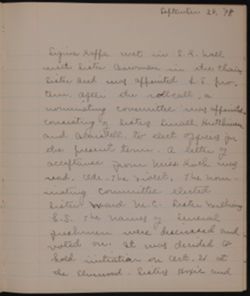 September 28, '98
Sigma Kappa met in S. K. Hall
with Sister Bowman in the chair
Sister and was appointed S. S. pro.
tem. After the roll call, a
nominating committee was appointed
consisting of Sisters Small,
and to elect officers for
the present term. A letter of
acceptance from Miss was
read, Ode - The Violet. The nom-
inating Committee elected
Sister Ward M.C. Sister
S.S. The names of several
freshmen were discussed and
voted on. It was decided to
hold initiation on Oct. 21 at
the Elmwood - Sisters and